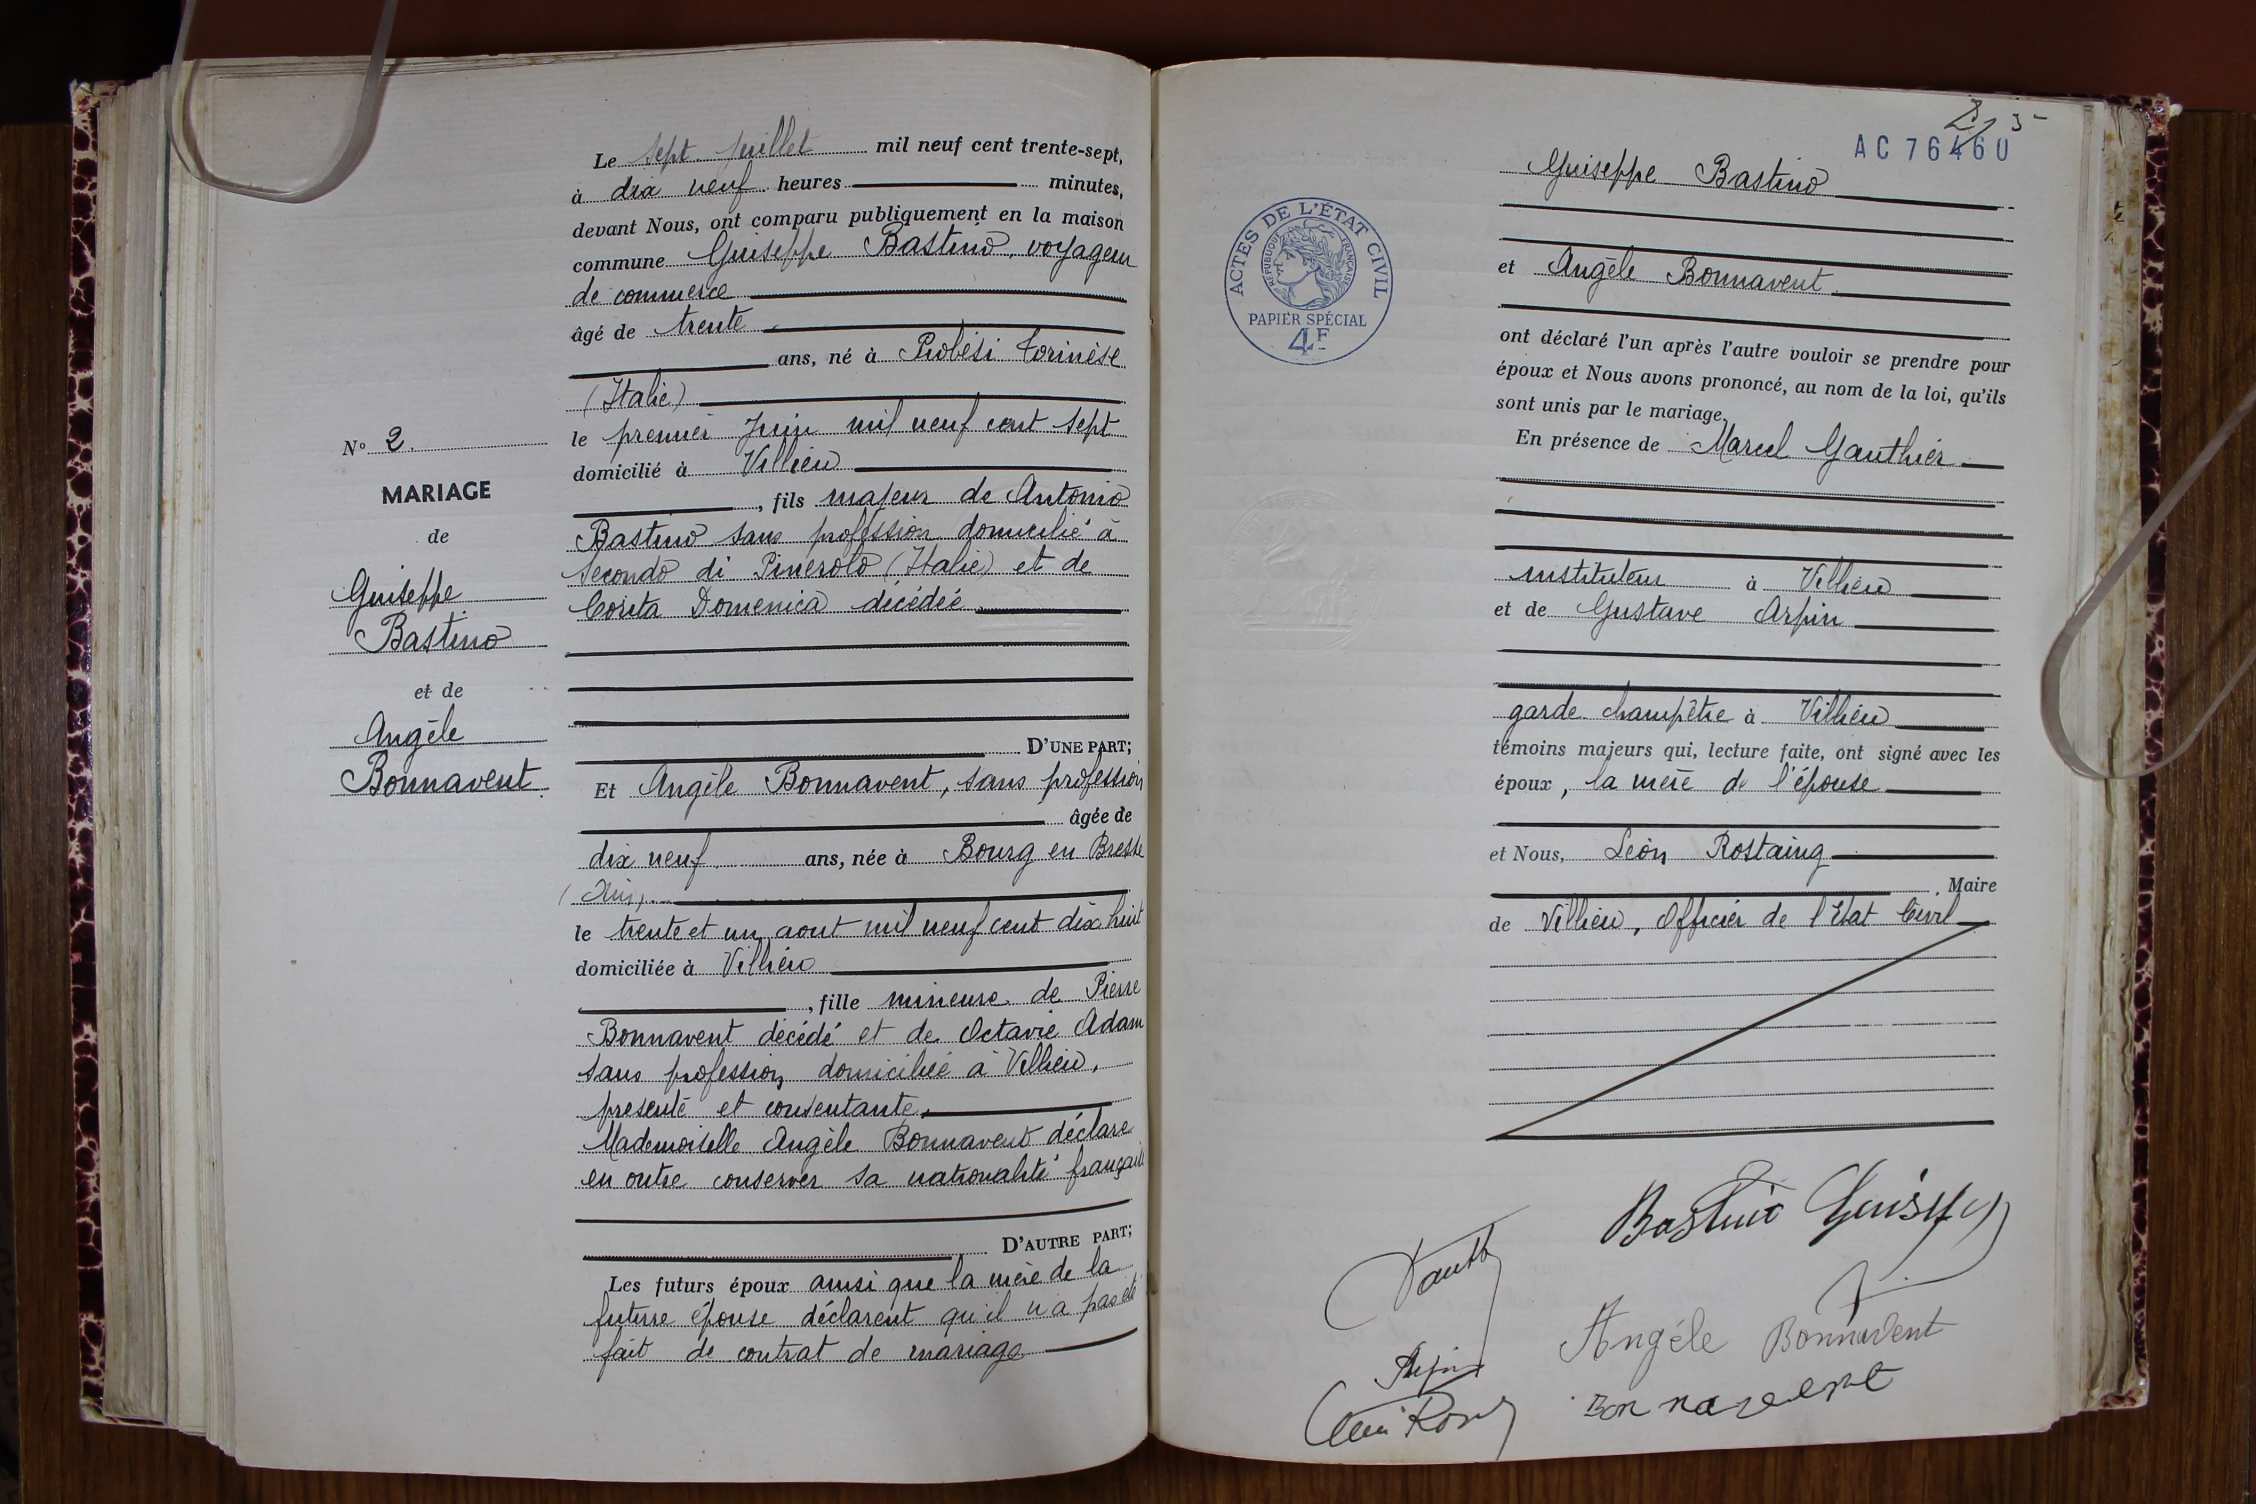 Le sept juillet mil neuf cent trente-sept,
à dix neuf heures minutes,
devant Nous, ont comparu publiquement en la maison
commune Guiseppe Bastino, voyageur
de commerce
âgé de trente
ans, né à Piobési Torinèse
(Italie)
le premier Juin mil neuf cent sept
domicilié à Villieu
, fils majeur de Antonio
Bastino sans profession domicilié à
Secondo di Pinerolo (Italie) et de
Domenica décédée
D'UNE PART;
Et Angèle Bonnavent, sans profession
âgée de
dix neuf ans, née à Bourg en Bresse
(Ain)
le trente et un aout mil neuf cent dix huit
domiciliée à Villieu
, fille mineure de Pierre
Bonnavent décédé et de Octavie Adam
sans profession domiciliée à Villieu,
presente et consentante.
Mademoiselle Angèle Bonnavent déclare
en outre conserver sa nationalité française
D'AUTRE PART;
Les futurs époux ainsi que la mère de la
future épouse déclarent qu'il n'a pas été
fait de contrat de mariage
N° 2.
MARIAGE
de
Guiseppe
Bastino
et de
Angèle
Bonnavent.
AC 76460
ACTES DE L'ÉTAT CIVIL
RÉPUBLIQUE FRANÇAISE
PAPIER SPÉCIAL
4F
Guiseppe Bastino
et Angèle Bonnavent
ont déclaré l'un après l'autre vouloir se prendre pour
époux et Nous avons prononcé, au nom de la loi, qu'ils
sont unis par le mariage.
En présence de Marcel Gauthier
instituteur à Villieu
et de Gustave Arpin
garde champêtre à Villieu
témoins majeurs qui, lecture faite, ont signé avec les
époux, la mère de l'épouse
et Nous, Léon Rostaing
, Maire
de Villieu, Officier de l'Etat Civil
Bastino Guiseppe
Angèle Bonnavent
Arpin
Bonnavent